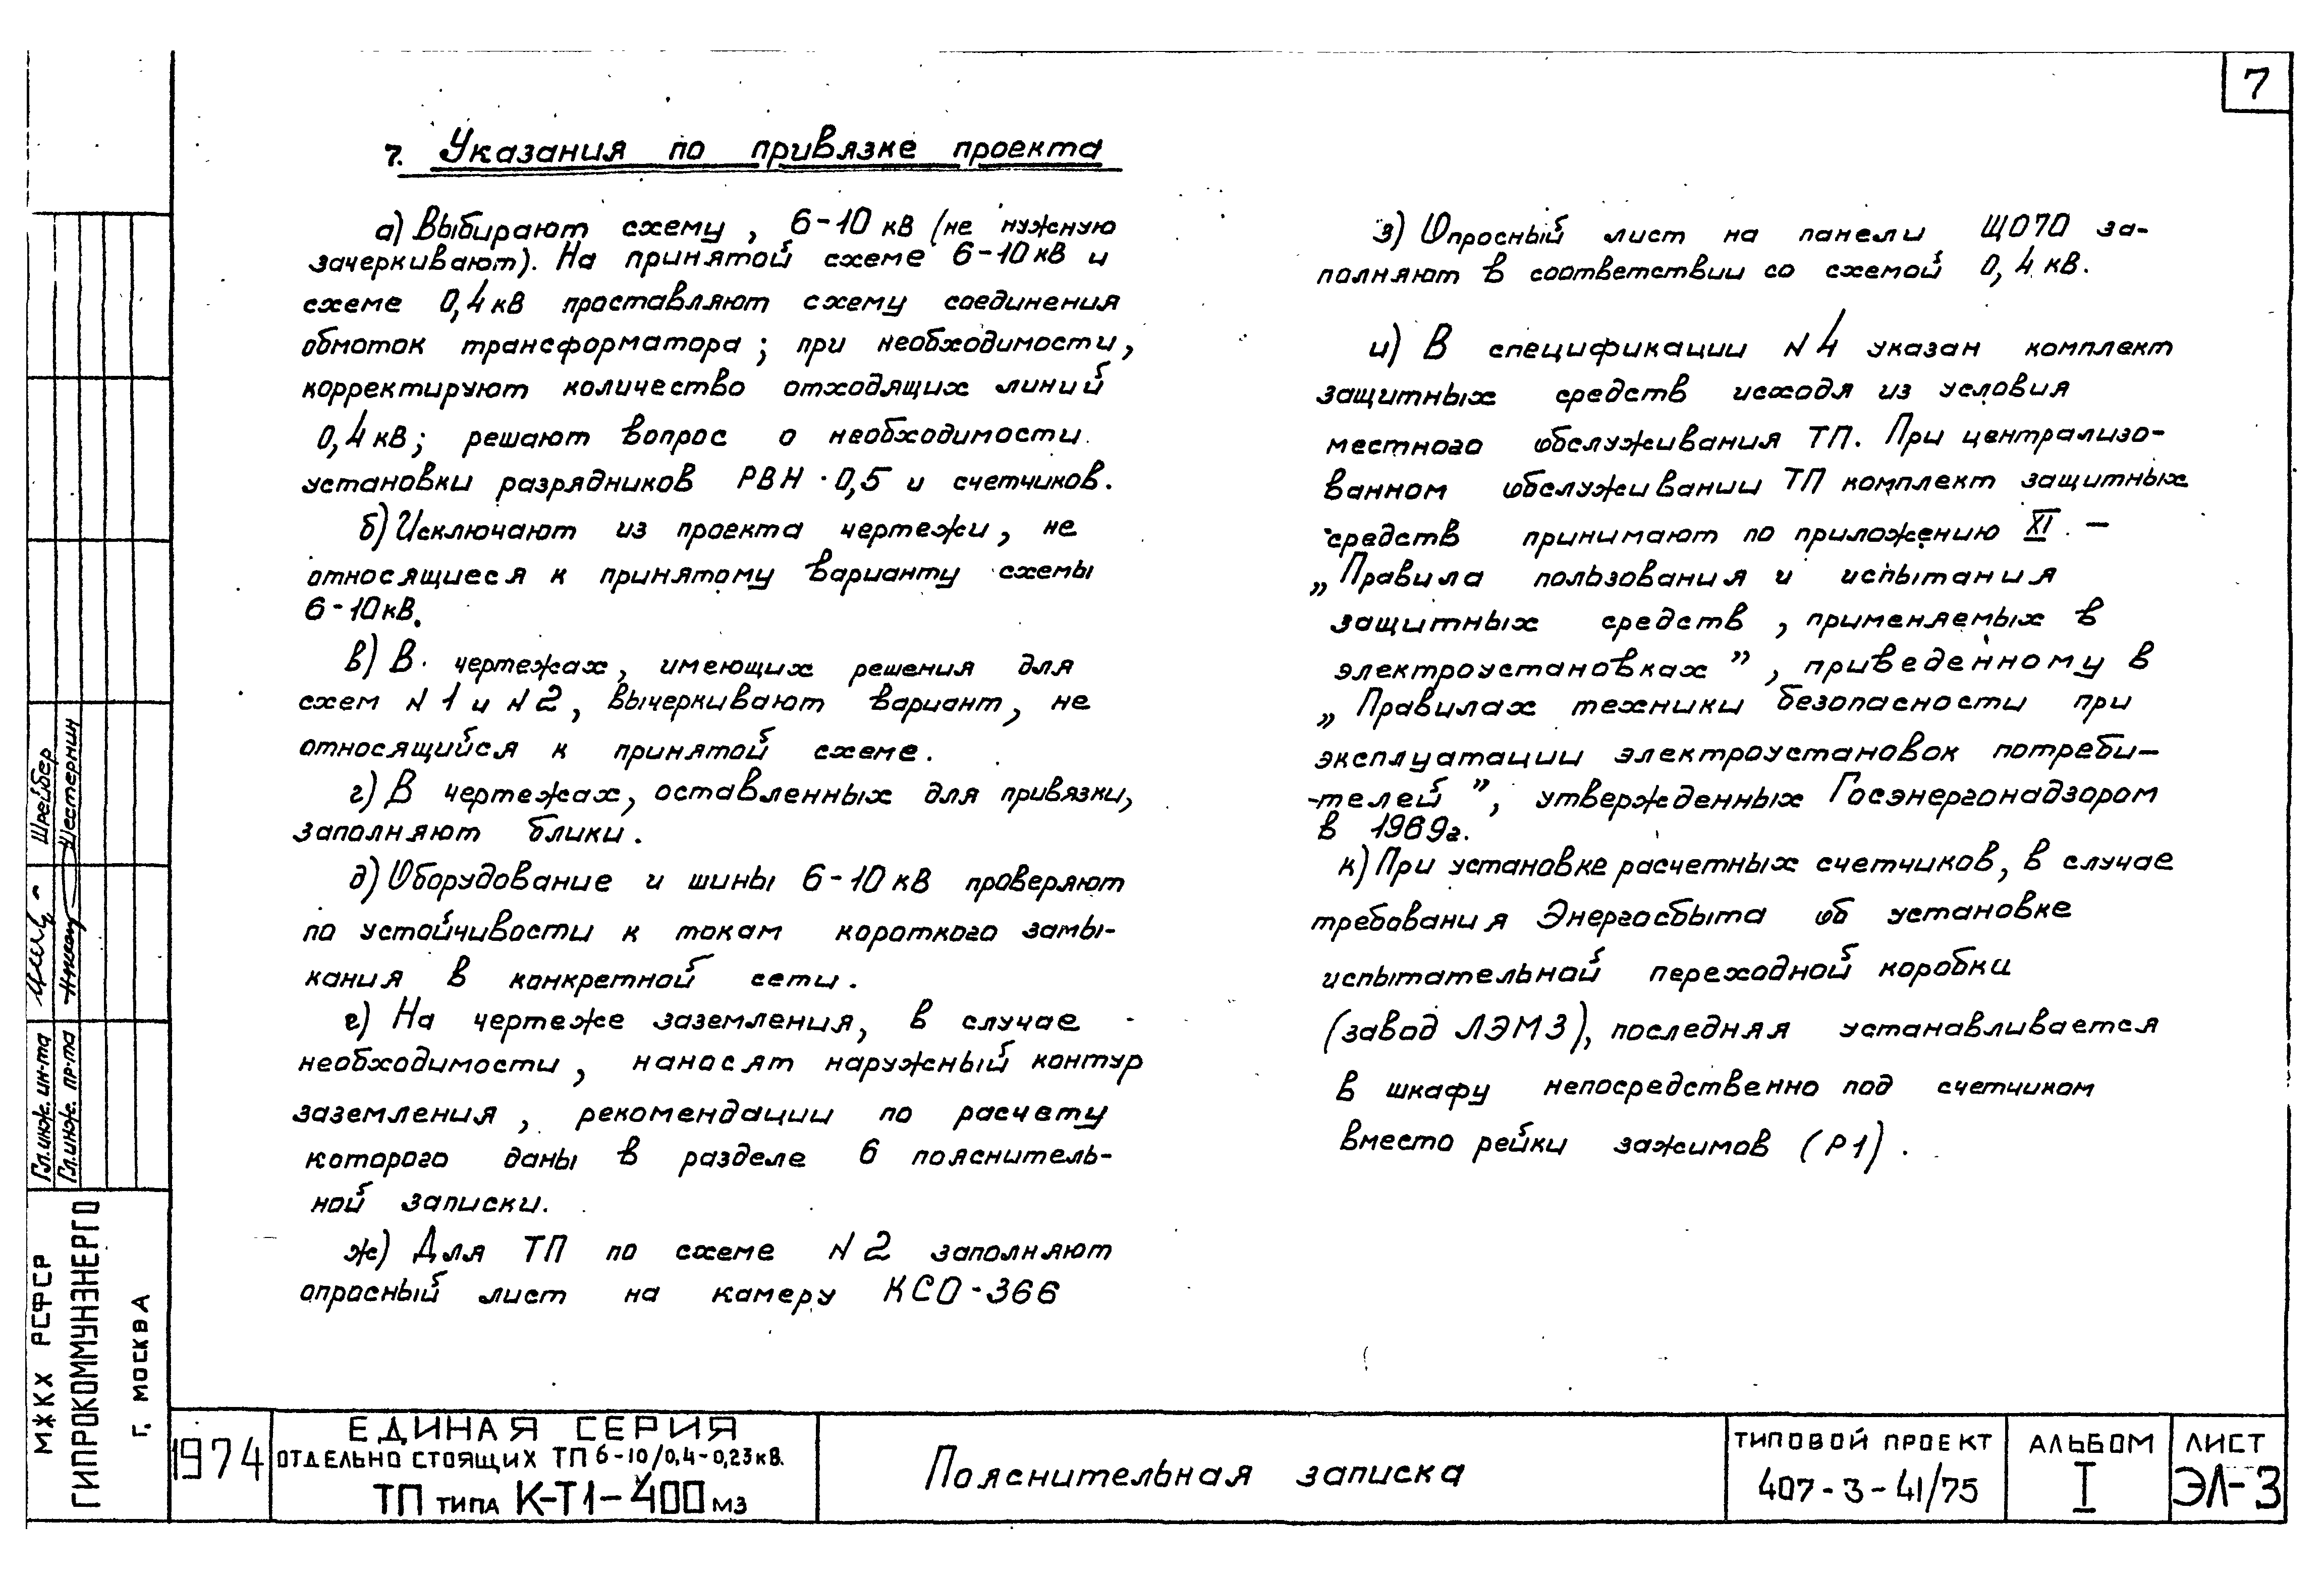 7
7. Указания по привязке проекта
а) Выбирают схему, 6-10 кВ (не нужную
зачеркивают). На принятой схеме 6-10кВ и
схеме 0,4кВ проставляют схему соединения
обмоток трансформатора; при необходимости,
корректируют количество отходящих линий
0,4кВ; решают вопрос о необходимости
установки разрядников РВН-0,5 и счетчиков.
б) Исключают из проекта чертежи, не
относящиеся к принятому варианту схемы
6-10кВ.
в) В чертежах, имеющих решения для
схем N1 и N2, вычеркивают вариант, не
относящийся к принятой схеме.
г) В чертежах, оставленных для привязки,
заполняют блики.
д) Оборудование и шины 6-10кВ проверяют
по устойчивости к токам короткого замы-
кания в конкретной сети.
е) На чертеже заземления, в случае
необходимости, наносят наружный контур
заземления, рекомендации по расчету
которого даны в разделе 6 пояснитель-
ной записки.
ж) Для ТП по схеме N2 заполняют
опросный лист на камеру КСО-366
з) Опросный лист на панели ЩО70 за-
полняют в соответствии со схемой 0,4кВ.
и) В спецификации N4 указан комплект
защитных средств исходя из условия
местного обслуживания ТП. При централизо-
ванном обслуживании ТП комплект защитных
средств принимают по приложению XI. —
„Правила пользования и испытания
защитных средств, применяемых в
электроустановках”, приведенному в
„Правилах техники безопасности при
эксплуатации электроустановок потреби-
-телей”, утвержденных Госэнергонадзором
в 1969г.
к) При установке расчетных счетчиков, в случае
требования Энергосбыта об установке
испытательной переходной коробки
(завод ЛЭМЗ), последняя устанавливается
в шкафу непосредственно под счетчиком
вместо рейки зажимов (Р1).
Гл. инж. ин-та Шрейбер
Гл. инж. пр-та Шестернин
МЖКХ РСФСР
ГИПРОКОММУНЭНЕРГО
Г. МОСКВА
1974
ЕДИНАЯ СЕРИЯ
ОТДЕЛЬНО СТОЯЩИХ ТП 6-10/0,4-0,23кВ.
ТП ТИПА К-Т1-400М3
Пояснительная записка
ТИПОВОЙ ПРОЕКТ
407-3-41/75
АЛЬБОМ
I
ЛИСТ
ЭЛ-3